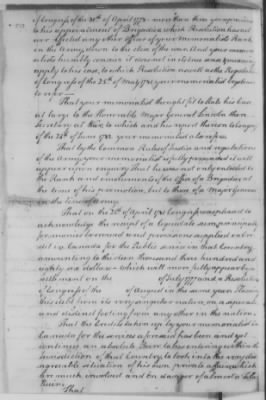 of Congress of the 31st of April 1778. more than two years previous
to his appointment of Brigadier which Resolution has not
affected any other officer of your memorialists Rank
in the Army, down to the close of the war. And your memori
alist humbly conceives it does not in Justice and
apply to his case, to which Resolution as well as the
of Congress of the 25th of May 1781 your memorialist begs leave
to refer—
That your memorialist thought fit to State his case
at large to the Honorable Major General Lincoln then
Secretary at War, to which and his report thereon to Congress
of the of June 1782 your memorialist also refers
That by the Common Rules of Justice and regulations
of the Army, your memorialist is fully persuaded it will
appear upon enquiry that he was not only entitled to
the Rank and emoluments of the office of a Brigadier at
the time of his promotion, but to those of a Major General
in the line of Army.
That on the 22d of April 1781 Congress was pleased to
acknowledge the receipt of your memorialists
for monies borrowed and provisions supplied on his cre
dit in Canada for the Public service in that Country
amounting to the sum thousand three hundred and
eighty six dollars—which will more fully appear by a
settlement on the of July 1777 and a Resolution
of Congress of the of August in the same year. Places
this debt from its very singular nature, on a separate
and distinct footing from any other in the nation.
That the Credit taken up by your memorialist in
Canada for the services aforesaid has been and yet
continues an absolute Barr to his entering within the
Jurisdiction of that Country, to look into the very dis
agreeable situation of his own private affairs which
are much involved and in danger of almost a total
Ruin.
That